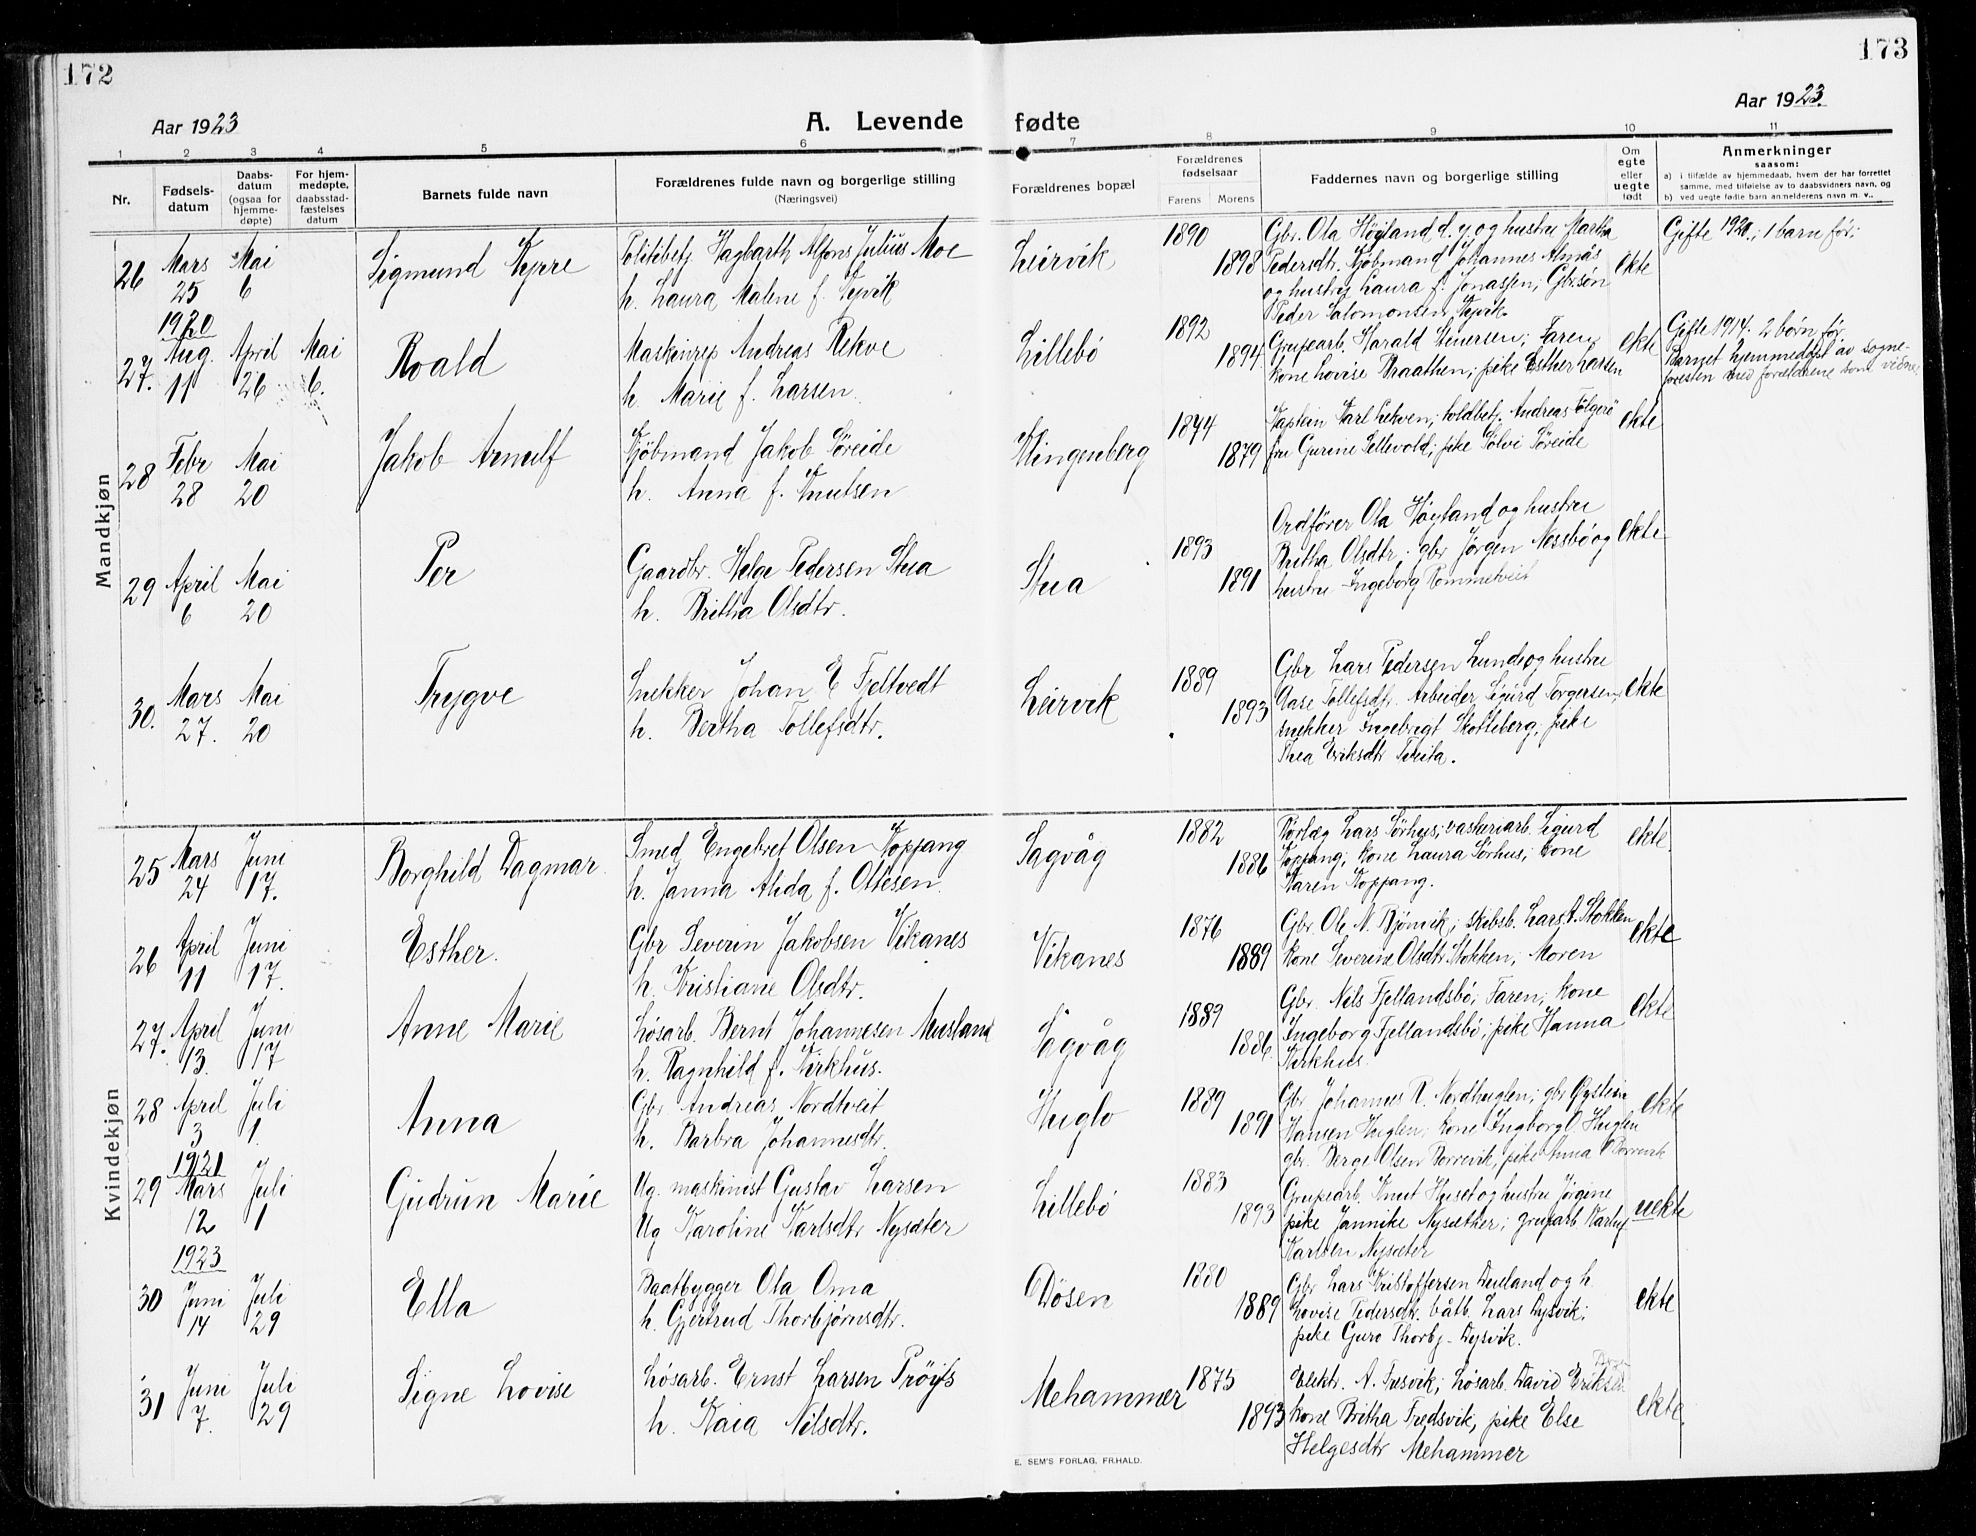 172
173
Aar 1923
A. Levende fødte
Aar 1923.
1 2 3 4 5 6 7 8 9 10 11
Nr.
Fødsels-
datum
Daabs-
datum
(ogsaa for
hjemme-
døpte)
For hjem-
medøpte,
daabsstad-
fæstelses
datum
Barnets fulde navn
Forældrenes fulde navn og borgerlige stilling
(Næringsvei)
Forældrenes bopæl
Forældrenes
fødselsaar
Farens Morens
Faddernes navn og borgerlige stilling
Om
egte
eller
uegte
født
Anmerkninger
saasom:
a) i tilfælde av hjemmedaab, hvem der har forrettet
samme, med tilføielse av to daabsvidners navn, og
b) ved uegte født barn anmelderens navn m. v..
Mandkjøn
26
Mars
25
Mai
6
Sigmund
Politibetj Hagbarth Alfons Julius Moe
h. Laura Malene f.
Leirvik
1890
1898
Gbr. Ola Høyland d. y og hustru Martha
Pedersdtr. Kjøbmand Johannes Almås
og hustru Laura f. Jonassen; Gbrsøn
Peder Salomonsen
ekte
Gifte 1920; 1 barn før:
27.
1920
Aug.
11
April
26
Mai
6.
Roald
Maskinrep Andreas Rekve
h. Marie f. Larsen.
Lillebø
1892
1894
Grupearb. Harald Steinersen; Faren;
kone Lovise Braathen; pike Esther Larsen
ekte
Gifte 1914. 2 børn før.
Barnet hjemmedøpt av sogne-
presten med forældrene som vidner
28
Febr
28
Mai
20
Jakob Arnulf
Kjøbmand Jakob Søreide
h. Anna f. Knutsen
Klingenberg
1874
1879
Kaptein Karl Lekven; toldbetj. Andreas Følgerø
fru Gurine Sellevold; pike Solvi Søreide
ekte
29
April
6
Mai
20
Per
Gaardbr. Helge Pedersen Stua
h. Britha Olsdtr.
Stua
1893
1891
Ordfører Ola Høyland og hustru
Britha Olsdtr. gbr Jørgen Nessbø og
hustru Ingeborg Rommetveit
ekte
30.
Mars
27.
Mai
20
Trygve
Snekker Johan E Fjeltvedt
h. Bertha Tollefsdtr.
Leirvik
1889
1893
Gbr Lars Pedersen Lunde og hustru
Aase Tollefsdtr. Arbeider Sigurd Torgersen,
snekker Ingebrigt Skotteberg; pike
Thea Eriksdtr Tveita.
ekte
Kvindekjøn
25
Mars
24
Juni
17.
Borghild Dagmar.
Smed Engebret Olsen Koppang
h. Janna Alida f. Ottesen.
Sagvåg
1882
1886
Rørlæg Lars Sørhus; vaskeriarb. Sigurd
Koppang; kone Laura Sørhus; kone
Karen Koppang.
ekte.
26
April
11
Juni
17.
Esther.
Gbr Severin Jakobsen Vikanes
h. Kristiane Olsdtr.
Vikanes
1876
1889
Gbr. Ole N. Bjørnvik; skibsb. Lars A. Stokken
kone Severine Olsdtr. Stokken; Moren
ekte
27.
April
13.
Juni
17
Anne Marie
Løsarb. Bernt Johannesen Musland
h. Ragnhild f. Kirkhus.
Sagvåg
1889
1886.
Gbr. Nils Fjellandsbø; Faren; kone
Ingeborg Fjellandsbø; pike Hanna
Kirkhus.
ekte
28
April
3
Juli
1.
Anna
Gbr Andreas Nordtveit
h. Barbra Johannesdtr.
Huglo
1889
1891
Gbr Johannes R. Nordhuglen; gbr Øystein
Hansen Huglen; kone Ingborg O. Huglen
gbr. Berge Olsen Borrevik; pike Anna O Borrevik
ekte
29
1921
Mars
12
Juli
1
Gudrun Marie
Ug. maskinist Gustav Larsen
Ug Karoline Karlsdtr Nysæter
Lillebø
1883
1893
Grupearb. Knut Huset og hustru Jørgine
pike Jannike Nysæther; gruparb Karluf
Karlsen Nysæter
uekte
30
1923
Juni
14
Juli
29
Ella
Baatbygger Ola Oma
h. Gjertrud Thorbjørnsdtr.
Døsen
1880
1889
Gbr Lars Kristoffersen Dusland og h.
Lovise Pedersdtr. båtb. Lars Dysvik;
pike Guro Thorbj- Dysvik.
ekte
31
Juni
7.
Juli
29
Signe Lovise
Løsarb. Ernst Larsen Prøyts
h. Kaia Nilsdtr.
Mehammer
1875
1893
Elektr. A. Tresvik; Løsarb. David Eriksen
kone Britha Fredsvik, pike Else
Helgesdtr Mehammer
ekte.
E. SEM'S FORLAG, FR.HALD.